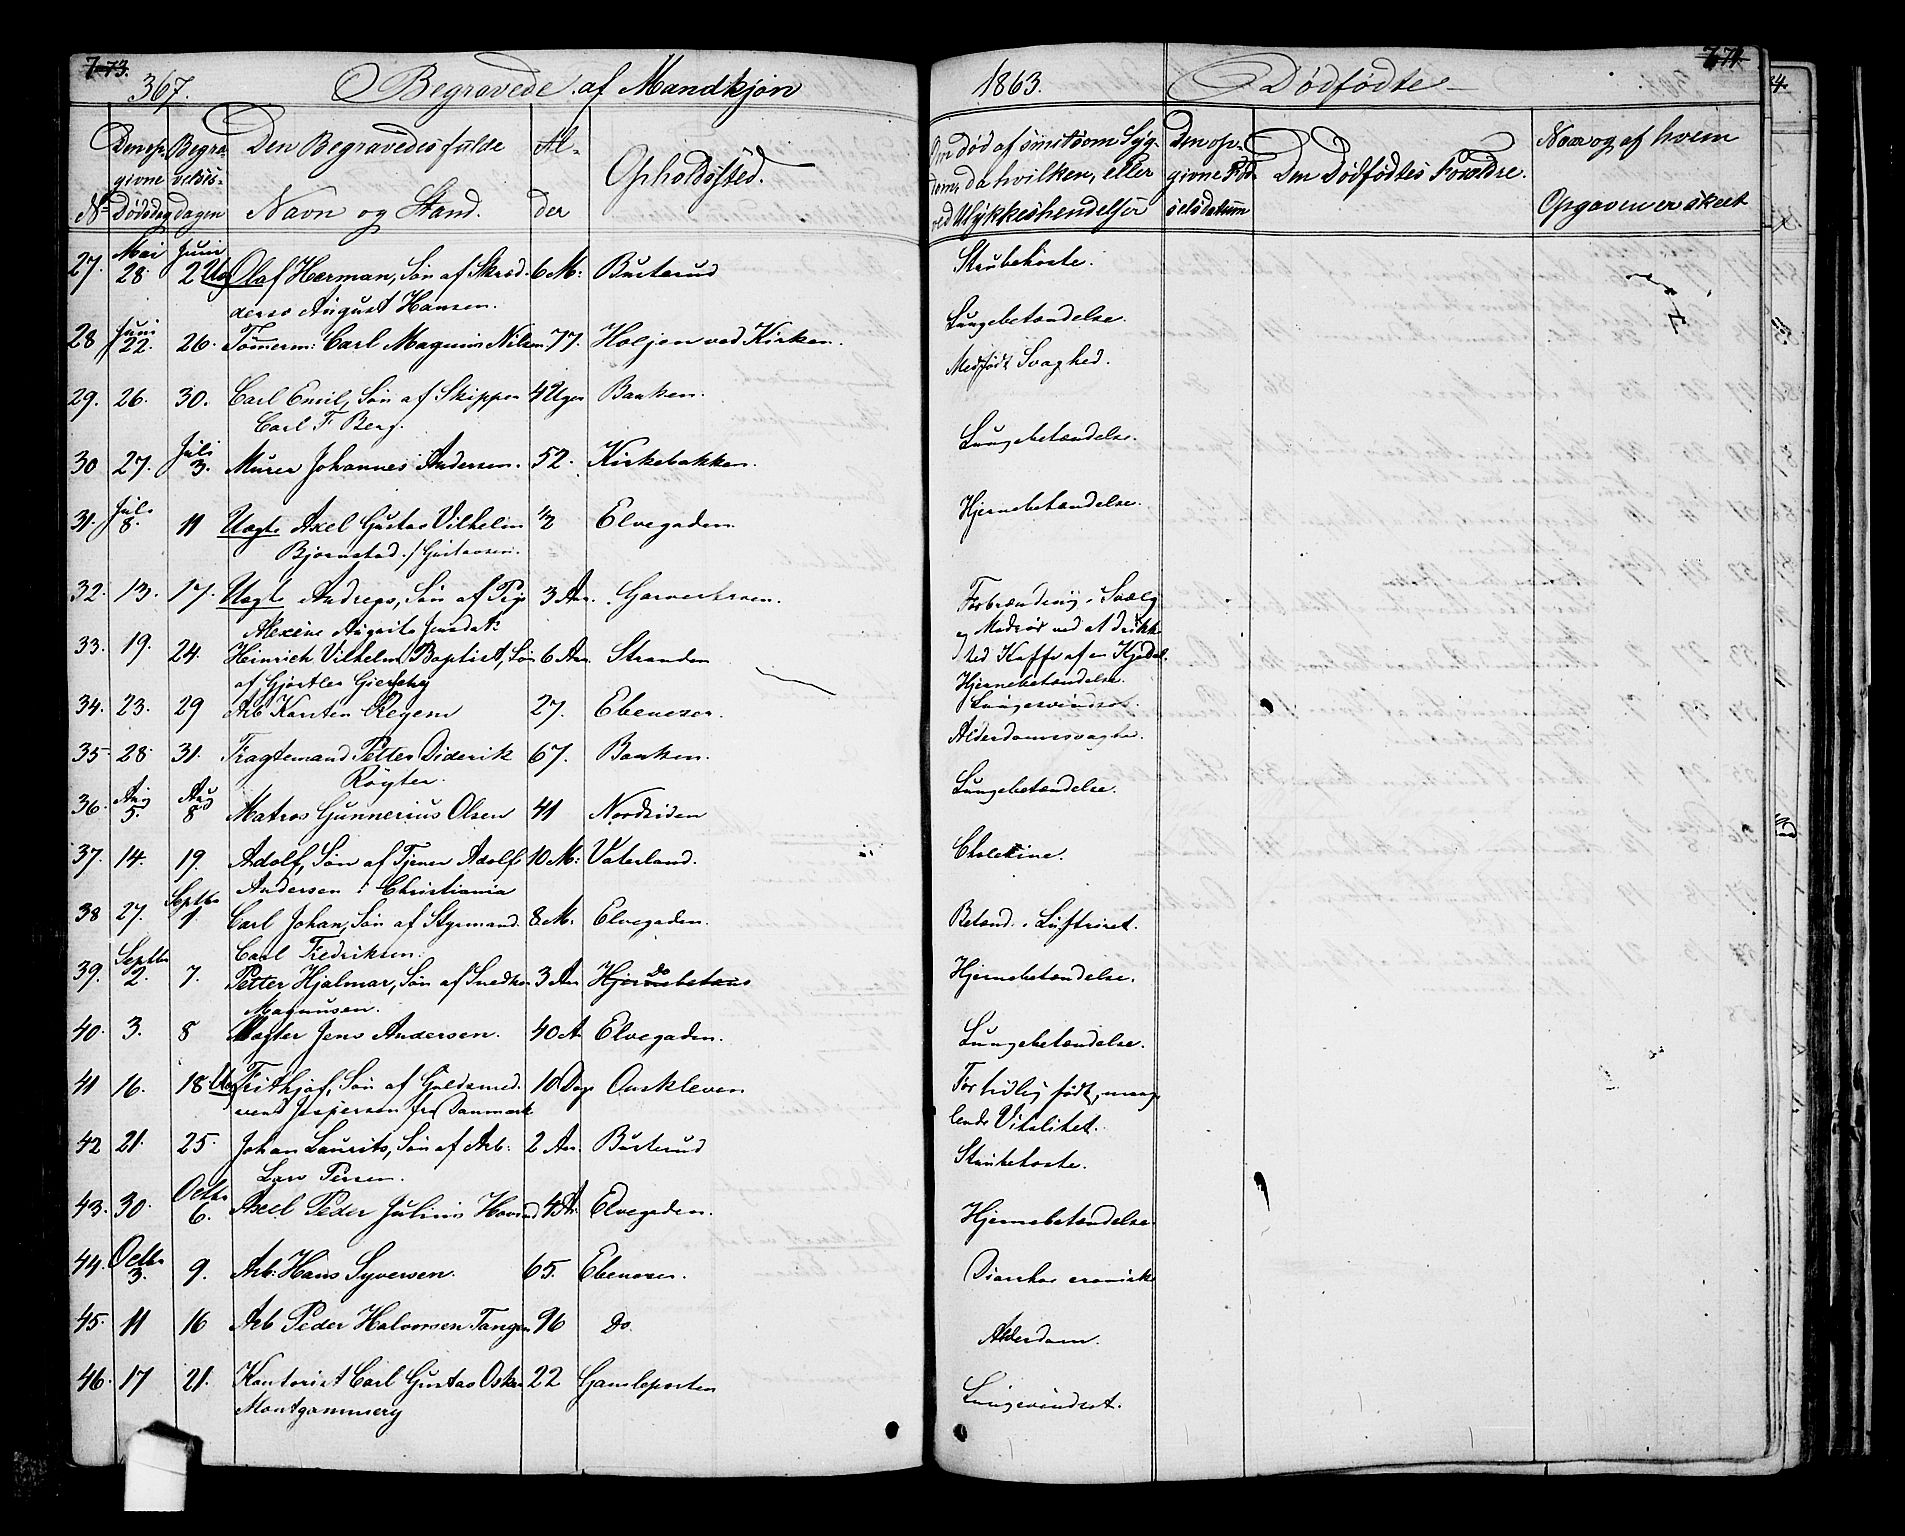 367. Begravede af Mandkjøn 1863. Dødfødte
No Den opgivne Dødsdag Begravelsesdagen Den Begravedes fulde Navn og Stand. Alder Opholdssted. Om død af smitsom Sygdom, da hvilken, eller ved Ulykkeshendelser Den opgivne Fødselsdatum Den Dødfødtes Forældre. Naar og af hvem Opgaven er skeet
27. Mai 28. Juni 2 Olaf Herman, Søn af Skræd- 6 M: Busterud Strubehoste.
ders August Hansen.
28 Juni 22. 26. Tømerm: Carl Magnus Nilsen 77. Høljen ved Kirken. Lungebetændelse.
29. 26. 30. Carl Emil, Søn af Skipper 4 Uger Banken. Medfødt Svaghed.
Carl F. Berg.
30 27. Juli 3. Murer Johannes Andersen. 52. Kirkebakken. Lungebetændelse.
31. Juli 8. 11 Uægte Axel Gustav Vilhelm 1/2 Elvegaden. Hjernebetændelse.
Bjørnstad. / Gustavsen.
32. 13. 17. Uægte Andreas, Søn af Pige 3 Aar. Garverhaven. Forbrænding i Svælg
Alexine Augusta Jensdat: og Madrør ved at drikke
hed Kaffe af en Kjedel.
33. 19. 24. Heinrich Vilhelm Baptist, Søn 6 Aar. Stranden Hjernebetændelse.
af Gjørtler
34. 23. 29 Arb Karsten Regem 27. Ebeneser. Lungesvindsot
35. 28. 31. Fragtemand Petter Diderik 67. Banken. Alderdomssvaghed.
Røgter.
36. Aug 5. Aug 8 Matros Gunnerius Olsen 41 Nordsiden Lungebetændelse.
37. 14. 19. Adolf, Søn af Tjener Adolf 10 M: Vaterland. Cholerine.
Andersen i Christiania
38 27. Septbr 1. Carl Johan, Søn af Styrmand. 8 M: Elvegaden. Betænd. i Luftrøret.
Carl Fredriksen.
39. Septbr 2. 7. Petter Hjalmar, Søn af Snedker 3 Aar Do Hjernebetændelse.
Magnusen.
40. 3. 8 Vægter Jens Andersen. 40 A Elvegaden. Lungebetændelse.
41 16. 18 Frithjof, Søn af Guldsmed- 10 Dage Ouskleven For tidlig født, mang-
svend Jespersen fra Danmark lende Vitalitet.
42 21. 25. Johan Laurits, Søn af Arb: 2 Aar. Busterud Strubehoste.
Lars Persen.
43. 30. Octbr 6. Axel Peder Julius Hovind 4 Ar. Elvegaden. Hjernebetændelse.
44. Octbr 3. 9. Arb: Hans Syversen. 65. Ebeneser. Diarrhoe cronisk
45. 11 16 Arb Peder Halvorsen Tangen 96 Do. Alderdom.
46. 17 21. Kontorist Carl Gustav Oskar 22 Gamleposten Lungesvindsot.
Montgommery